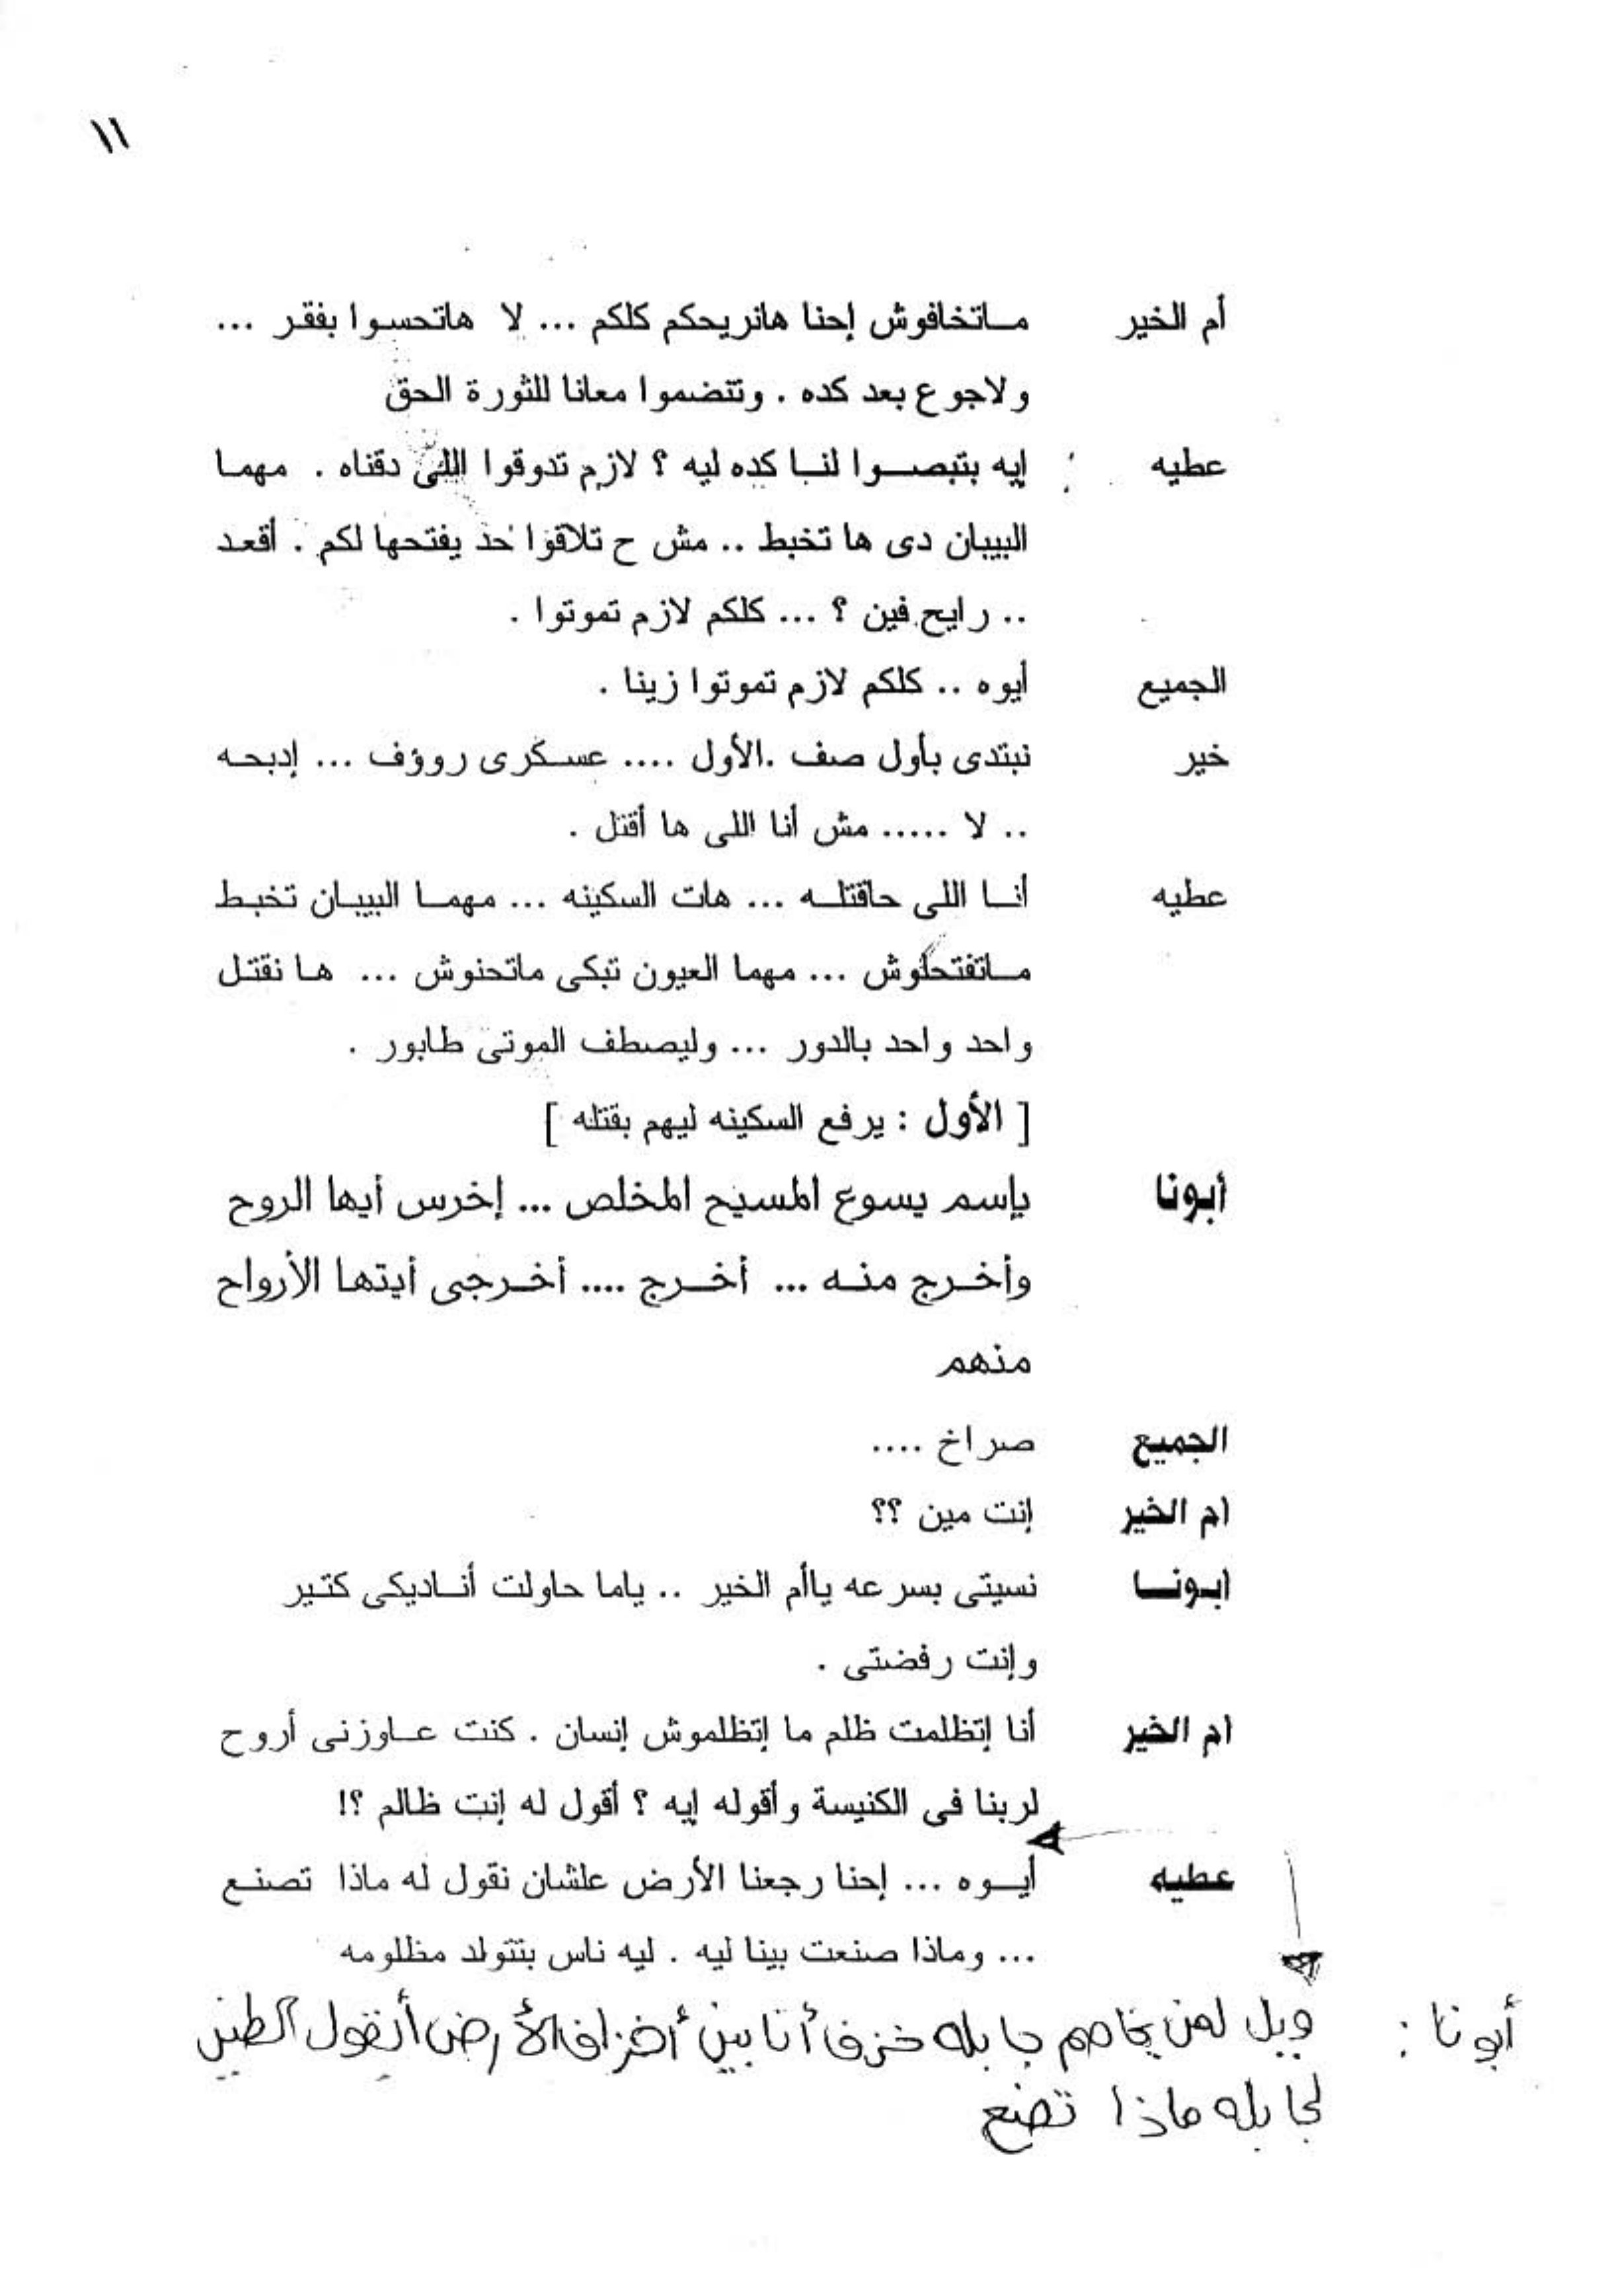 ١١
أم الخير ماتخافوش إحنا هانريحكم كلكم ... لا هاتحسوا بفقر ...
ولاجوع بعد كده . وتتضموا معانا للثورة الحق
عطيه : إيه بتبصوا لنا كده ليه ؟ لازم تدوقوا اللى دقناه . مهما
البيبان دى ها تخبط .. مش ح تلاقوا حد يفتحها لكم . أقعد
.. رايح فين ؟ ... كلكم لازم تموتوا .
الجميع أيوه .. كلكم لازم تموتوا زينا .
خير نبتدى بأول صف .الأول .... عسكرى رووف ... إدبحه
.. لا ..... مش أنا اللى ها أقتل .
عطيه أنا اللى حاقتله ... هات السكينه ... مهما البيبان تخبط
ماتفتحلوش ... مهما العيون تبكى ماتحنوش ... ها نقتل
واحد واحد بالدور ... وليصطف الموتى طابور .
[ الأول : يرفع السكينه ليهم بقتله ]
أبونا بإسم يسوع المسيح المخلص ... إخرس أيها الروح
وأخرج منه ... أخرج .... أخرجى أيتها الأرواح
منهم
الجميع صراخ ....
ام الخير إنت مين ؟؟
ابونا نسيتى بسرعه ياأم الخير .. ياما حاولت أناديكى كتير
وإنت رفضتى .
ام الخير أنا إتظلمت ظلم ما إتظلموش إنسان . كنت عاوزنى أروح
لربنا فى الكنيسة وأقوله إيه ؟ أقول له إنت ظالم ؟!
عطيه أيوه ... إحنا رجعنا الأرض علشان نقول له ماذا تصنع
... وماذا صنعت بينا ليه . ليه ناس بتتولد مظلومه
أبونا : ويل لمن يخاصم جابله خزف أنا بين أخزاف الأرض أيقول الطين
لجابله ماذا تصنع